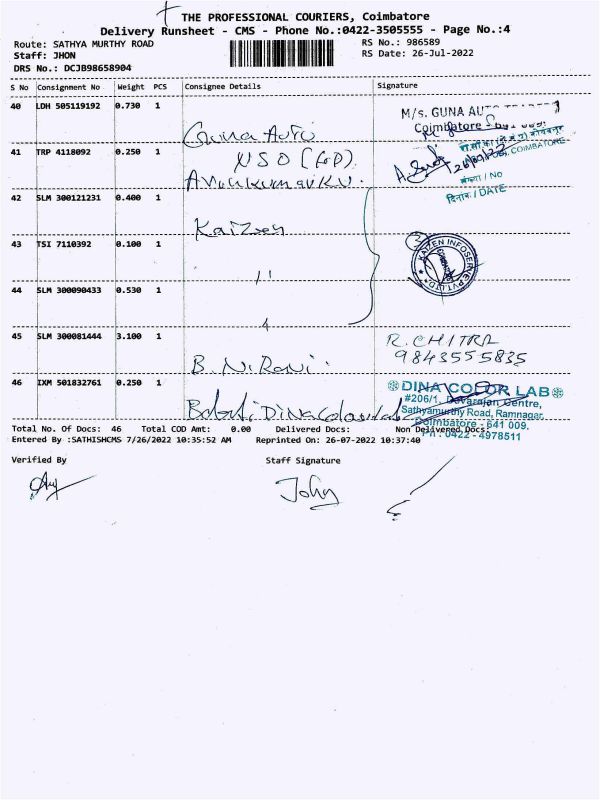 THE PROFESSIONAL COURIERS, Coimbatore
Delivery Runsheet - CMS - Phone No.:0422-3505555 - Page No.:4
Route: SATHYA MURTHY ROAD
RS No.: 986589
Staff: JHON
RS Date: 26-Jul-2022
DRS No.: DCJB98658904
S No Consignment No Weight PCS Consignee Details Signature
40 LDH 505119192 0.730 1 Guna Auto
M/s. GUNA AUTO
Coimbatore
41 TRP 4118092 0.250 1 NSO (FOD)
Arunkumar KV.
COIMBATORE
संख्या / NO
दिनांक / DATE
42 SLM 300121231 0.400 1 Kaizen
43 TSI 7110392 0.100 1 "
KAIZEN INFOSERVE PVT LTD
44 SLM 300090433 0.530 1 "
45 SLM 300081444 3.100 1 B. N. Rani.
R. CHITRA
9843555835
46 IXM 501832761 0.250 1 Dina Color Lab
DINA COLOR LAB
#206/1, Devarajan Centre,
Sathyamurthy Road, Ramnagar,
Coimbatore - 641 009.
Ph : 0422 - 4978511
Total No. Of Docs: 46 Total COD Amt: 0.00 Delivered Docs: Non Delivered Docs:
Entered By :SATHISHCMS 7/26/2022 10:35:52 AM Reprinted On: 26-07-2022 10:37:40
Verified By Staff Signature
John